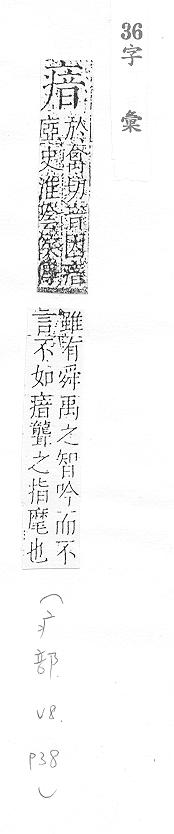 36
字彙
瘖
於禽切音因瘖
瘂史淮陰侯傳
雖有舜禹之智吟而不
言不如瘖聾之指麾也
(疒部. V8. P38)